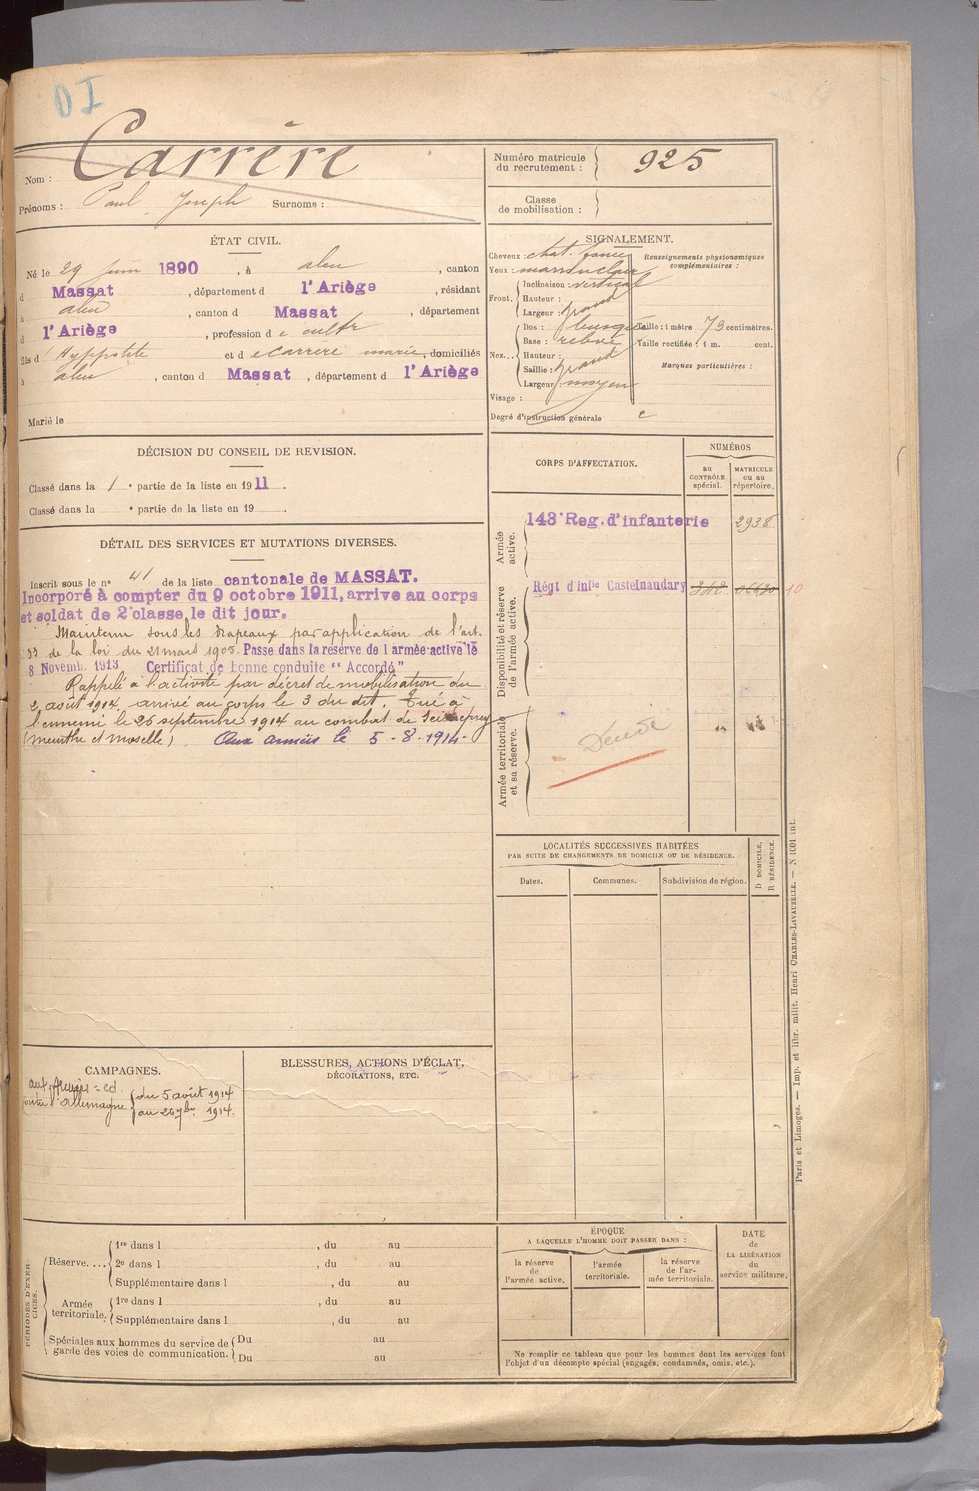 DI
Nom : Carrère
Prénoms : Paul Joseph Surnoms :
Numéro matricule du recrutement : 925
Classe de mobilisation :
ÉTAT CIVIL.
Né le 29 juin 1890, à aleu, canton
d Massat, département d l'Ariège, résidant
à aleu, canton d Massat département
d l'Ariège, profession d e cultr
fils d' Hyppolite et d e Carrère marie, domiciliés
à aleu, canton d Massat, département d l'Ariège
Marié le
SIGNALEMENT.
Cheveux : chat. foncé
Yeux : marron clair
Front. Inclinaison : vertical
Hauteur :
Largeur : grand
Nez... Dos : busqué
Base : relevé
Hauteur :
Saillie : grand
Largeur moyen
Visage :
Degré d'instruction générale 2
Renseignements physionomiques complémentaires :
Taille : 1 mètre 73 centimètres.
Taille rectifiée : 1 m. cent.
Marques particulières :
DÉCISION DU CONSEIL DE REVISION.
Classé dans la 1 e partie de la liste en 1911.
Classé dans la e partie de la liste en 19 .
DÉTAIL DES SERVICES ET MUTATIONS DIVERSES.
Inscrit sous le n° 41 de la liste cantonale de MASSAT.
Incorporé à compter du 9 octobre 1911, arrive au corps
et soldat de 2e classe, le dit jour.
Maintenu sous les drapeaux par application de l'art.
33 de la loi du 21 mars 1905. Passe dans la réserve de l'armée active le
8 Novemb. 1913 Certificat de bonne conduite " Accordé"
Rappelé à l'activité par décret de mobilisation du
2 août 1914, arrivé au corps le 3 du dit. Tué à
l'ennemi le 26 septembre 1914 au combat de
(Meurthe et Moselle) Aux armées le 5-8-1914-
CORPS D'AFFECTATION.
NUMÉROS
au CONTRÔLE spécial.
MATRICULE ou au répertoire.
Armée active.
143e Reg. d'infanterie 2938
Disponibilité et réserve de l'armée active.
Régt d'infie Castelnaudary 342 10
Armée territoriale et sa réserve.
Décédé
LOCALITÉS SUCCESSIVES HABITÉES
PAR SUITE DE CHANGEMENTS DE DOMICILE OU DE RÉSIDENCE.
Dates. Communes. Subdivision de région.
D DOMICILE.
R RÉSIDENCE.
CAMPAGNES.
aux Armées = cd.
contre l'allemagne du 5 août 1914
au 26 7bre 1914.
BLESSURES, ACTIONS D'ÉCLAT,
DÉCORATIONS, ETC.
PÉRIODES D'EXERCICES.
Réserve.... 1re dans l , du au
2e dans l , du au
Supplémentaire dans l , du au
Armée territoriale. 1re dans l , du au
Supplémentaire dans l , du au
Spéciales aux hommes du service de garde des voies de communication. Du au
Du au
ÉPOQUE
A LAQUELLE L'HOMME DOIT PASSER DANS :
la réserve de l'armée active.
l'armée territoriale.
la réserve de l'armée territoriale.
DATE de LA LIBÉRATION du service militaire.
Ne remplir ce tableau que pour les hommes dont les services font
l'objet d'un décompte spécial (engagés, condamnés, omis, etc.).
Paris et Limoges. — Imp. et libr. milit. Henri CHARLES-LAVAUZELLE. — N 1001 int.